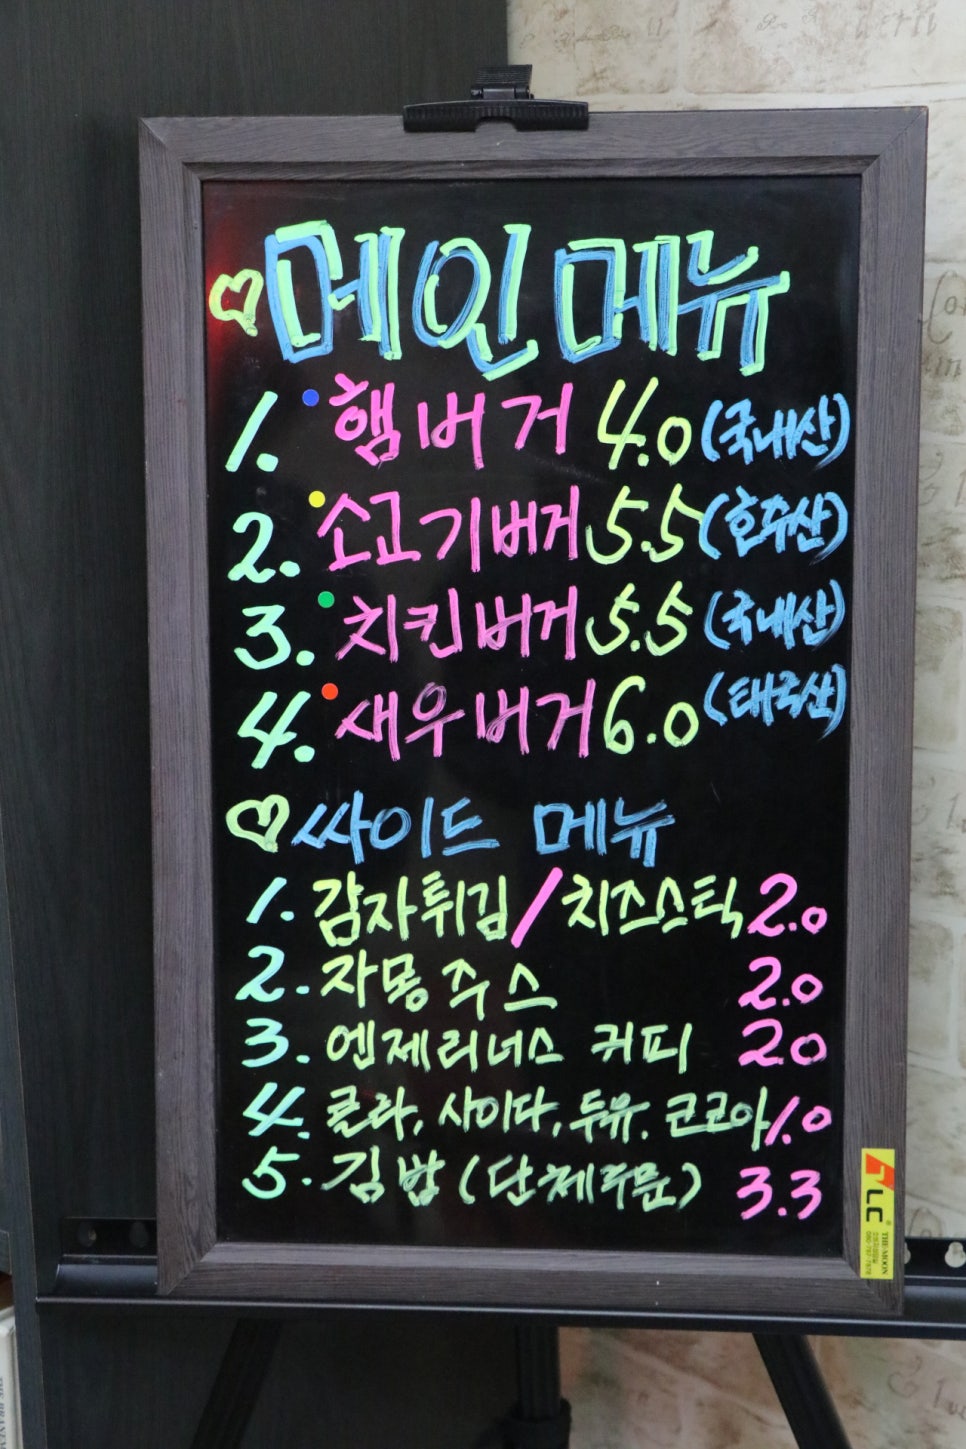 메인메뉴
1. 햄버거 4.0 (국내산)
2. 소고기버거 5.5 (호주산)
3. 치킨버거 5.5 (국내산)
4. 새우버거 6.0 (태국산)
싸이드 메뉴
1. 감자튀김/치즈스틱 2.0
2. 자몽주스 2.0
3. 엔제리너스 커피 2.0
4. 콜라, 사이다, 두유. 코코아 1.0
5. 김밥 (단체주문) 3.3
LC
THE MOON